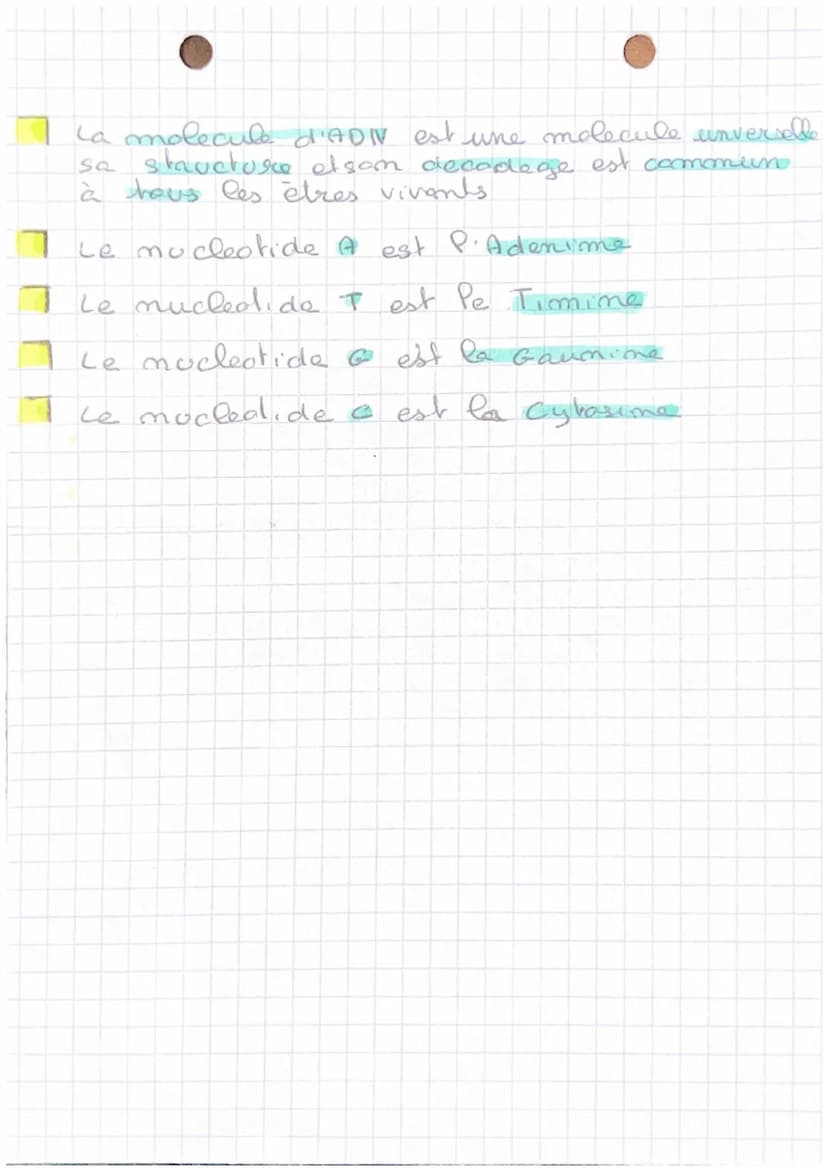 La molecule d'ADN est une molecule unverselle
sa structure et son decodage est commun
à tous les êtres vivants
Le nucleotide A est l'Adenime
Le nucleotide T est le Timime
Le nucleotide G est la Gaunime
Le nucleotide C est la Cytosime